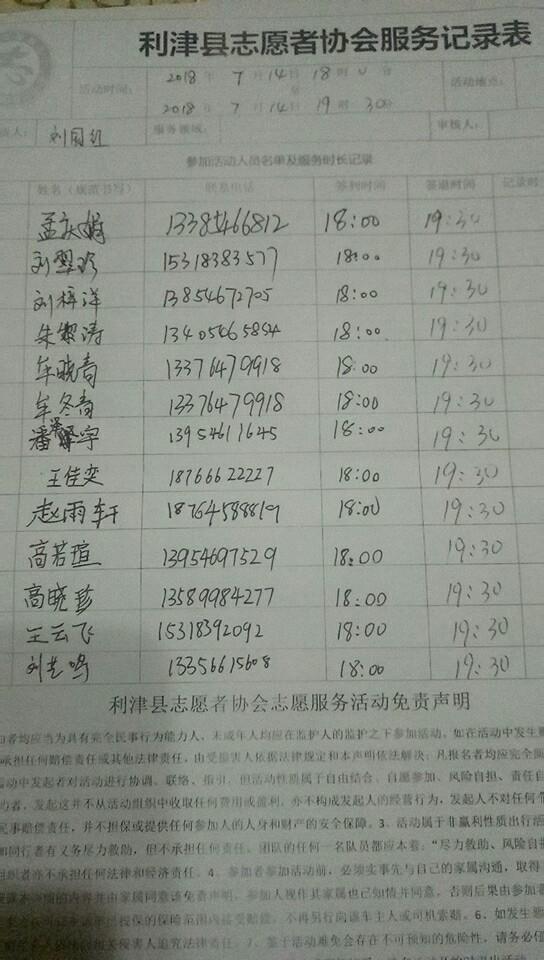 利津县志愿者协会服务记录表
活动时间： 2018年 7月14日 18时0分 活动地点：
至
2018年 7月14日 19时30分
责人： 服务领域： 审核人：
参加活动人员名单及服务时长记录
姓名（规范书写） 联系电话 签到时间 签退时间 记录时
孟庆娟 13385466812 18:00 19:30
15318383577 18:00 19:30
刘梓洋 13854672705 18:00 19:30
13405465854 18:00 19:30
牟晓青 13376479918 18:00 19:30
牟冬青 13376479918 18:00 19:30
潘 宇 13954611645 18:00 19:30
王佳奕 18766622227 18:00 19:30
赵雨轩 18764588819 18:00 19:30
高若瑄 13954697529 18:00 19:30
高晓珍 13589984277 18:00 19:30
王云飞 15318392092 18:00 19:30
13356615608 18:00 19:30
利津县志愿者协会志愿服务活动免责声明
加者均应当为具有完全民事行为能力人，未成年人均应在监护人的监护之下参加活动，如在活动中发生
承担任何赔偿责任或其他法律责任，由受损害人依据法律规定和本声明依法解决；凡报名者均应完全
动中发起者对活动进行协调、联络、指引，但活动性质属于自由结合、自愿参加、风险自担、责任自
为者，发起这并不从活动组织中收取任何费用或盈利，亦不构成发起人的经营行为，发起人不对任何个
民事赔偿责任，并不担保或提供任何参加人的人身和财产的安全保障。3、活动属于非赢利性质出行活
如同行者有义务尽力救助，但不承担任何责任。团队的任何一名队员都应本着：“尽力救助、风险自担
组织者亦不承担任何法律和经济责任。4、参加者参加活动前，必须实事先与自己的家属沟通，取得
本 的内容并由家属同意该免责声明。参加人视作其家属也已知情并同意。否则后果由参加者
投保的保险范围内接受赔偿，不再另行向该车主人或司机索赔。6、如发生
相关侵害人追究法律责任。7、鉴于活动难免会存在不可预知的危险性，请务必